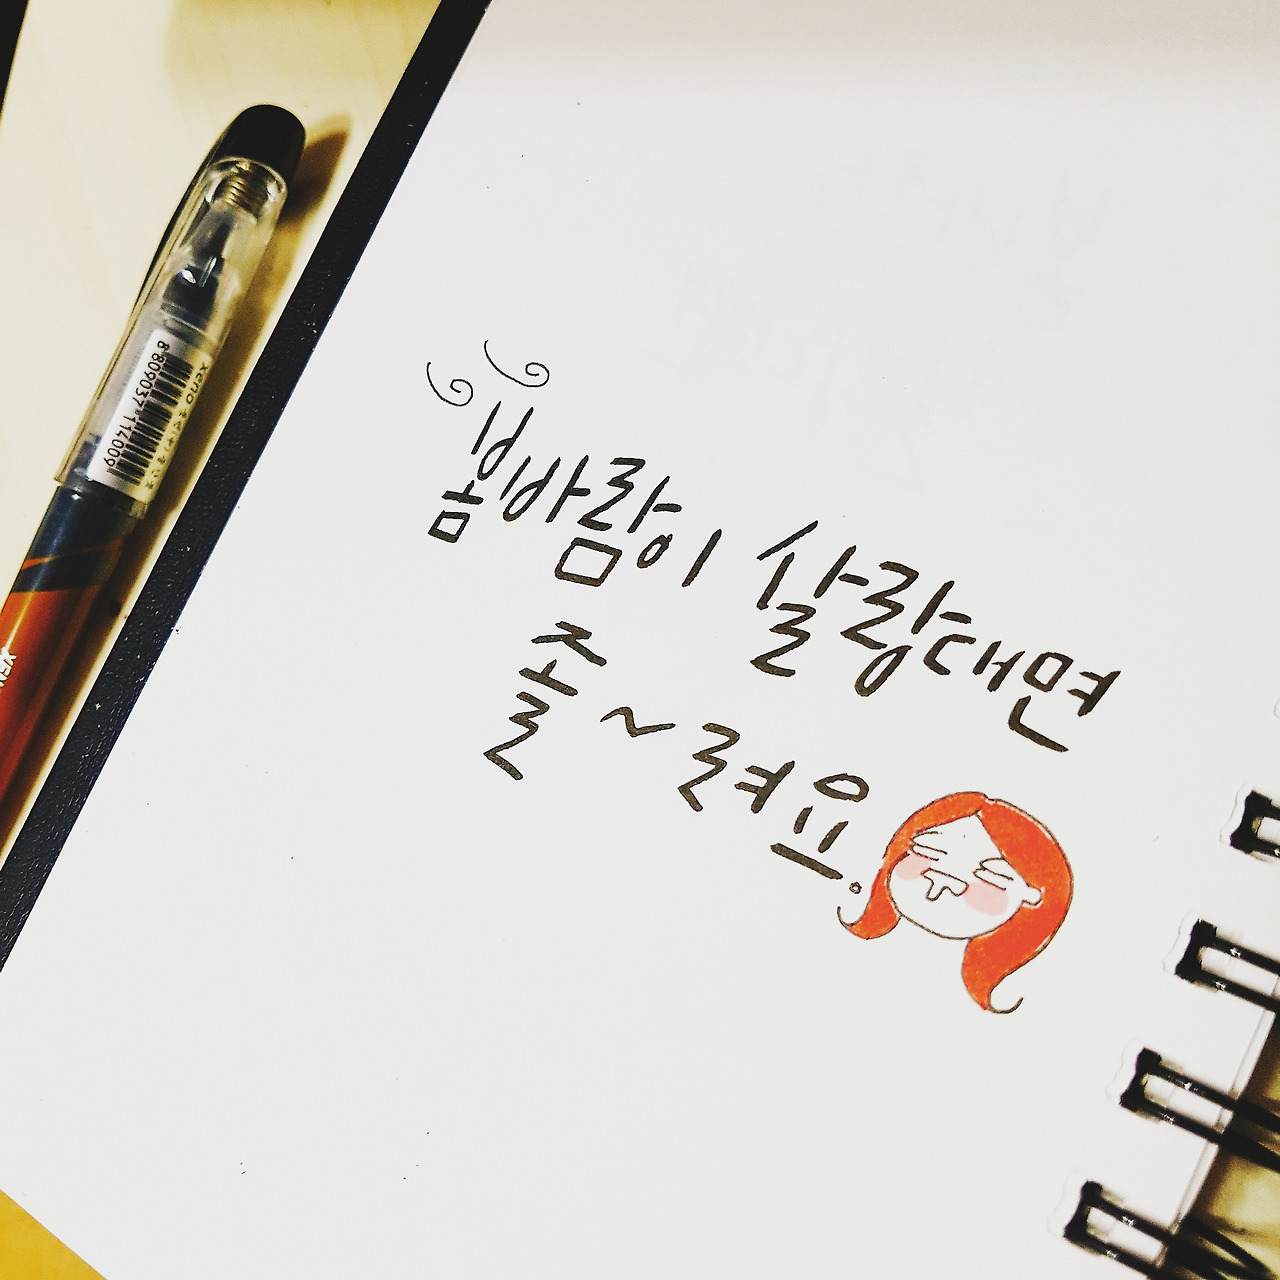 봄바람이 살랑대면
졸~려요.
xeno
8 809037 114009
XEN